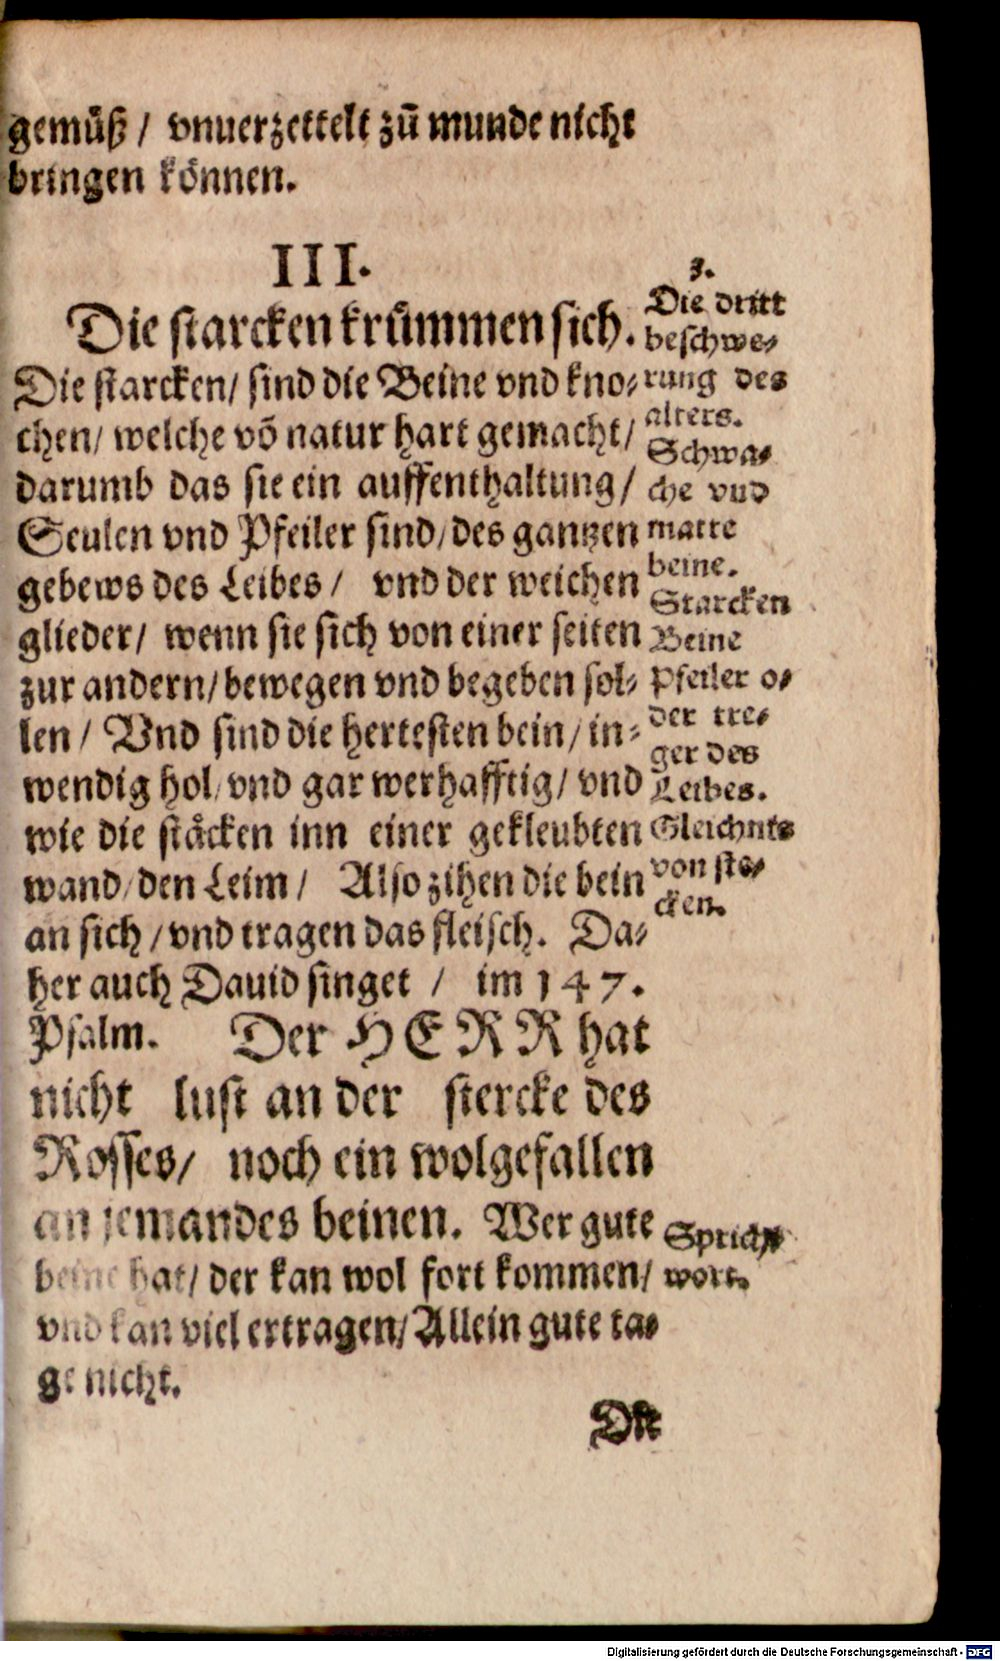 gemüß / vnuerzettelt zū munde nicht
bringen können.
III.
Die starcken krümmen sich.
Die starcken / sind die Beine vnd kno-
chen / welche vō natur hart gemacht /
darumb das sie ein auffenthaltung /
Seulen vnd Pfeiler sind / des gantzen
gebews des Leibes / vnd der weichen
glieder / wenn sie sich von einer seiten
zur andern / bewegen vnd begeben sol-
len / Vnd sind die hertesten bein / in-
wendig hol / vnd gar werhafftig / vnd
wie die stäcken inn einer gekleubten
wand / den Leim / Also zihen die bein
an sich / vnd tragen das fleisch. Da-
her auch Dauid singet / im 147.
Psalm. Der HERR hat
nicht lust an der stercke des
Rosses / noch ein wolgefallen
an jemandes beinen. Wer gute
beine hat / der kan wol fort kommen /
vnd kan viel ertragen / Allein gute ta-
ge nicht.
3.
Die dritt
beschwe-
rung des
alters.
Schwa-
che vnd
matte
beine.
Starcken
Beine
Pfeiler o-
der tre-
ger des
Leibes.
Gleichnis
von ste-
cken.
Sprich-
wort.
Digitalisierung gefördert durch die Deutsche Forschungsgemeinschaft - DFG